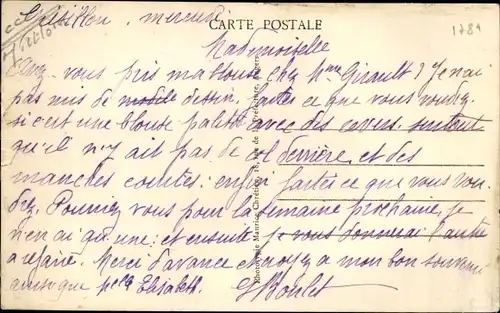 CARTE POSTALE
1789
mercredi
Mademoiselle
Avez-vous pris ma blouse chez Mme Girault? Je n'ai
pas mis de modele dessin, faites ce que vous voudrez
si c'est une blouse paletot avec des revers. surtout
qu'il n'y ait pas de col derrière, et des
manches courtes: enfin faites ce que vous vou-
drez. Pourriez vous pour la semaine prochaine, je
n'en ai qu'une: et ensuite je vous donnerai l'autre
a refaire. Merci d'avance et croyez a mon bon souvenir
ainsi que Elisabeth. Boulet
Maurice Chrétien, 18, rue